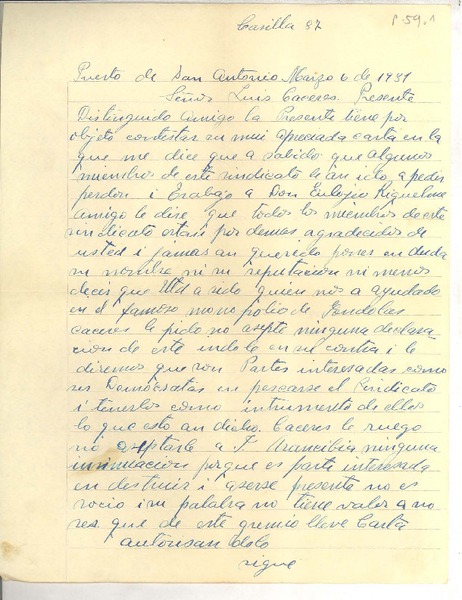 Casilla 87
P.59.1
Puerto de San Antonio Marzo 6 de 1931
Señor Luis Caceres. Presente
Distinguido amigo la Presente tiene por
objeto contestar su mui apreciada carta en la
que me dice que a salido que algunos
miembros de este sindicato le an ido a pedir
perdon i Trabajo a Don Eulojio Riquelme
amigo le dire que todos los miembros de este
sindicato estan por demas agradecidos de
usted i jamas an querido poner en duda
su nombre ni su reputacion ni menos
decir que Utd a sedo quien nos a ayudado
en el famoso monopolio de Gondolas
caceres le pido no asepte ninguna declara
cion de este indole en su contra i le
diremos que son Partes interesadas como
ser Democratas en pescarse el Sindicato
i tenerlos como intrumento de ellos
lo que esto an dicho. Caceres le ruego
no aseptarle a F. Arancibia ninguna
insinuacion porque es parte interesada
en destruir i aserse presente no es
socio i su palabra no tiene valor a no
ser que de este gremio lleve Carta
autorisandolo
sigue